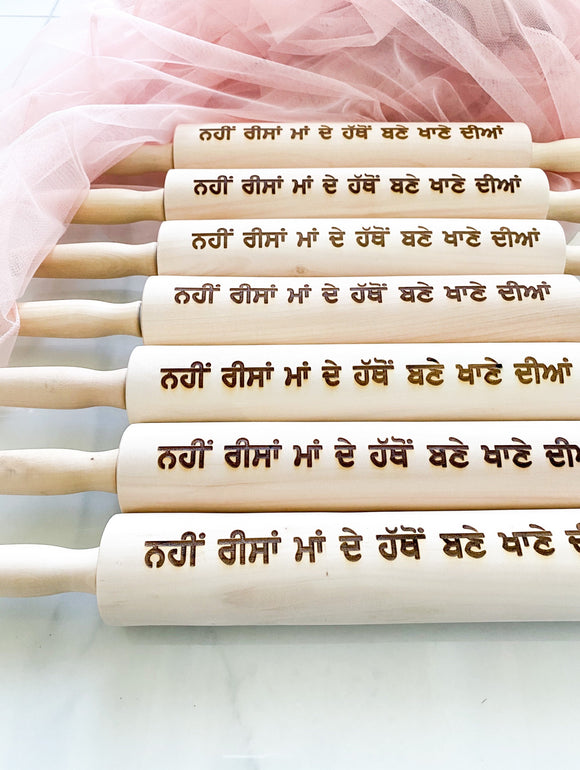 ਨਹੀਂ ਰੀਸਾਂ ਮਾਂ ਦੇ ਹੱਥੋਂ ਬਣੇ ਖਾਣੇ ਦੀਆਂ
ਨਹੀਂ ਰੀਸਾਂ ਮਾਂ ਦੇ ਹੱਥੋਂ ਬਣੇ ਖਾਣੇ ਦੀਆਂ
ਨਹੀਂ ਰੀਸਾਂ ਮਾਂ ਦੇ ਹੱਥੋਂ ਬਣੇ ਖਾਣੇ ਦੀਆਂ
ਨਹੀਂ ਰੀਸਾਂ ਮਾਂ ਦੇ ਹੱਥੋਂ ਬਣੇ ਖਾਣੇ ਦੀਆਂ
ਨਹੀਂ ਰੀਸਾਂ ਮਾਂ ਦੇ ਹੱਥੋਂ ਬਣੇ ਖਾਣੇ ਦੀਆਂ
ਨਹੀਂ ਰੀਸਾਂ ਮਾਂ ਦੇ ਹੱਥੋਂ ਬਣੇ ਖਾਣੇ
ਨਹੀਂ ਰੀਸਾਂ ਮਾਂ ਦੇ ਹੱਥੋਂ ਬਣੇ ਖਾਣੇ